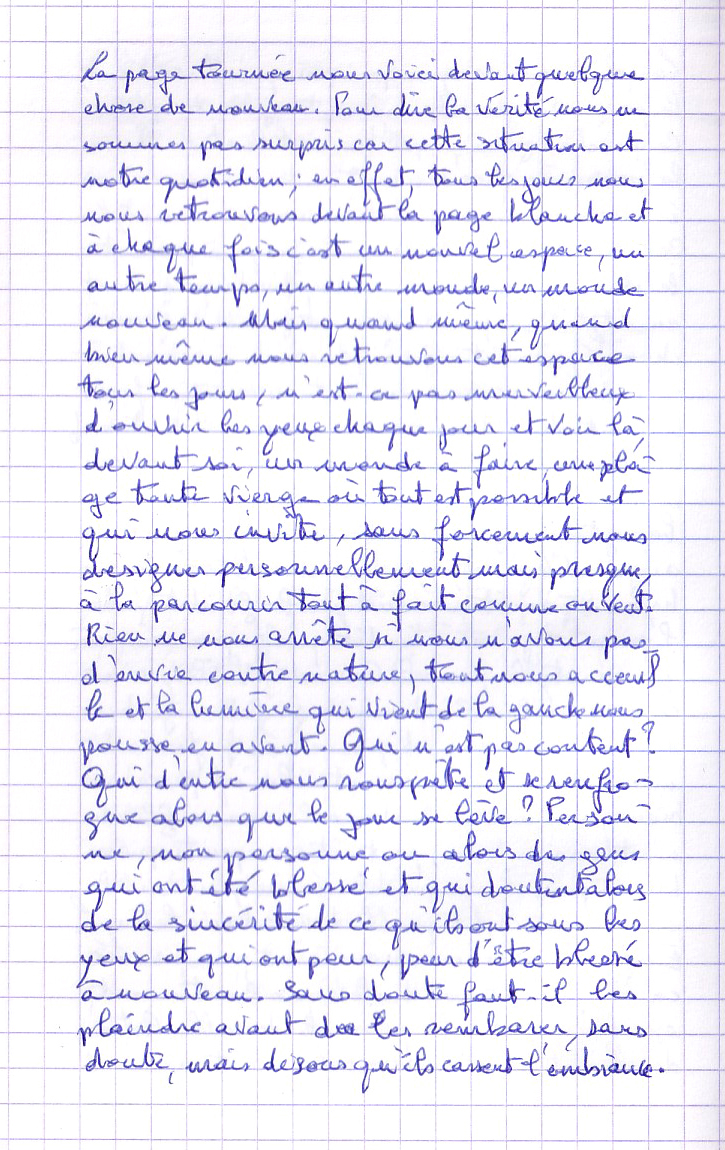 La page tournée nous voici devant quelque
chose de nouveau. Pour dire la vérité nous ne
sommes pas surpris car cette situation est
notre quotidien ; en effet, tous les jours nous
nous retrouvons devant la page blanche et
à chaque fois c'est un nouvel espace, un
autre temps, un autre monde, un monde
nouveau. Mais quand même, quand
bien même nous retrouvons cet espace
tous les jours, n'est-ce pas merveilleux
d'ouvrir les yeux chaque jour et voir là,
devant soi, un monde à faire, une pla-
ge toute vierge où tout est possible et
qui nous invite, sans forcement nous
designer personnellement mais presque,
à la parcourir tout à fait comme on veut.
Rien ne nous arrête si nous n'avons pas
d'envie contre nature, tout nous acceuil
le et la lumière qui vient de la gauche nous
pousse en avant. Qui n'est pas content ?
Qui d'entre nous rouspète et se renfro-
gne alors que le jour se lève ? Person-
ne, non personne ou alors des gens
qui ont été blessé et qui doutent alors
de la sincérité de ce qu'ils ont sous les
yeux et qui ont peur, peur d'être blessé
à nouveau. Sans doute faut-il les
plaindre avant de les rembarer, sans
doute, mais disons qu'ils cassent l'ambiance.